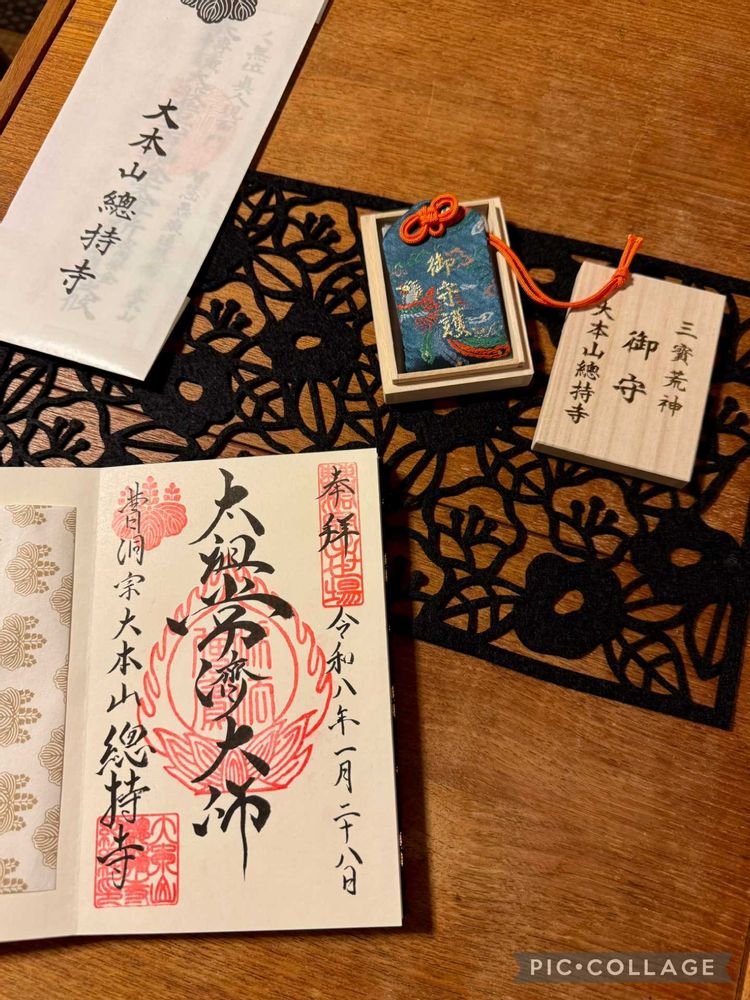 大本山總持寺
御守護
三寳荒神
御守
大本山總持寺
奉拝
令和八年一月二十八日
太祖常濟大師
曹洞宗大本山總持寺
PIC•COLLAGE